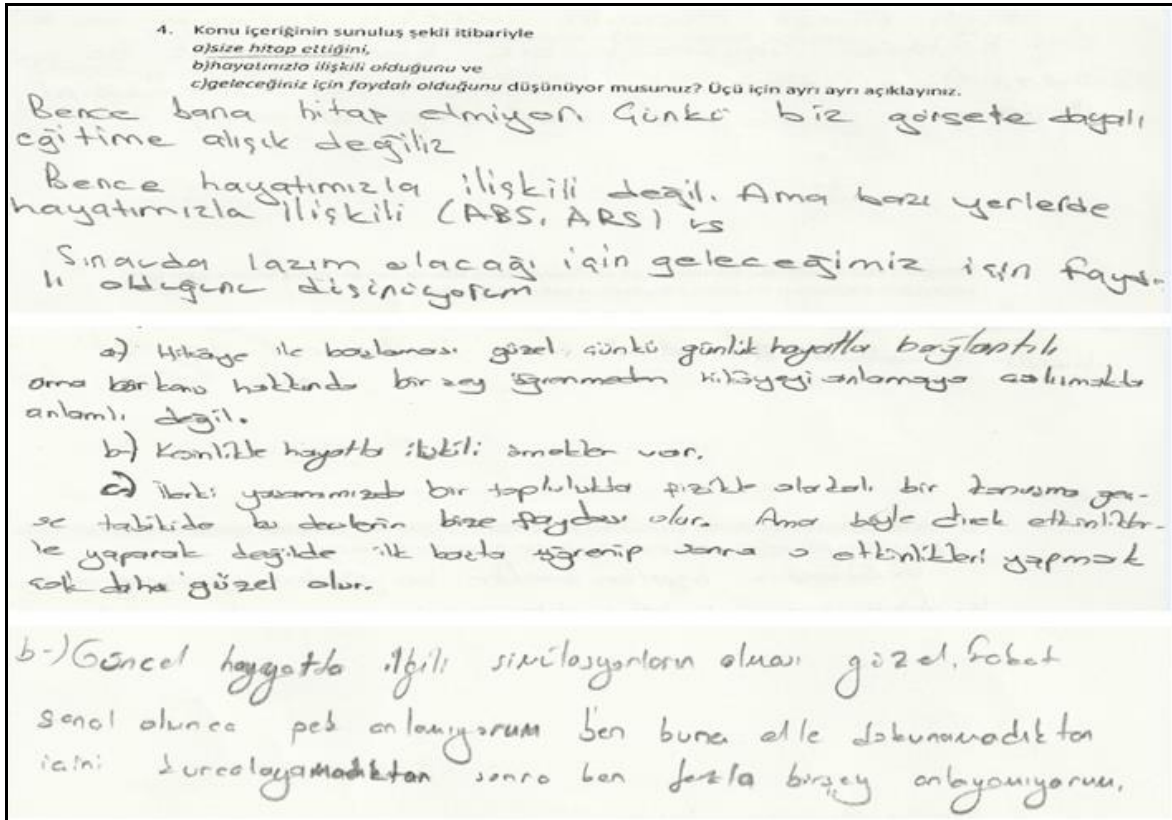 4. Konu içeriğinin sunuluş şekli itibariyle
a)size hitap ettiğini,
b)hayatınızla ilişkili olduğunu ve
c)geleceğiniz için faydalı olduğunu düşünüyor musunuz? Üçü için ayrı ayrı açıklayınız.
Bence bana hitap etmiyor. Çünkü biz görsele dayalı
eğitime alışık değiliz
Bence hayatımızla ilişkili değil. Ama bazı yerlerde
hayatımızla ilişkili (ABS, ARS)
Sınavda lazım olacağı için geleceğimiz için fayda-
lı olduğunu düşünüyorum
a) Hikâye ile başlaması güzel çünkü günlük hayatla bağlantılı
ama bir konu hakkında bir şey öğrenmeden hikâyeyi anlamaya çalışmakta
anlamlı değil.
b) Kesinlikle hayatla ilişkili örnekler var.
c) İlerki yaşamımızda bir toplulukta fizikle alakalı bir konuşma geç-
se tabikide bu derslerin bize faydası olur. Ama böyle direk etkinlikler-
le yaparak değilde ilk başta öğrenip sonra o etkinlikleri yapmak
çok daha güzel olur.
b-) Güncel hayatla ilgili simülasyonların olması güzel. Fakat
sanal olunca pek anlamıyorum ben buna elle dokunamadıktan
içini kurcalayamadıktan sonra ben fazla birşey anlayamıyorum.